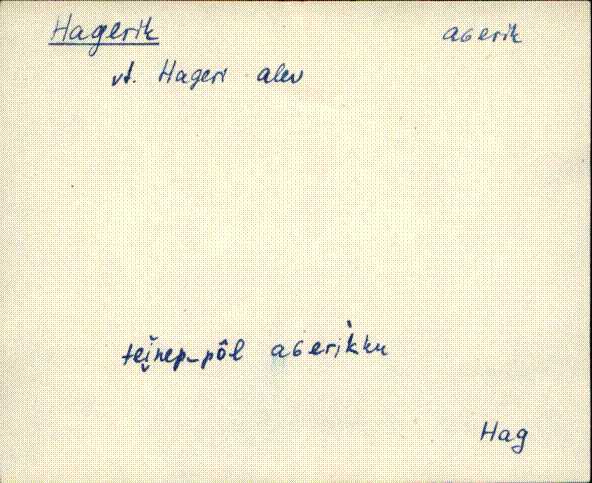 Hagerik aGerik
vt. Hageri alev
tei̯nep-pôl aGerìkku
Hag